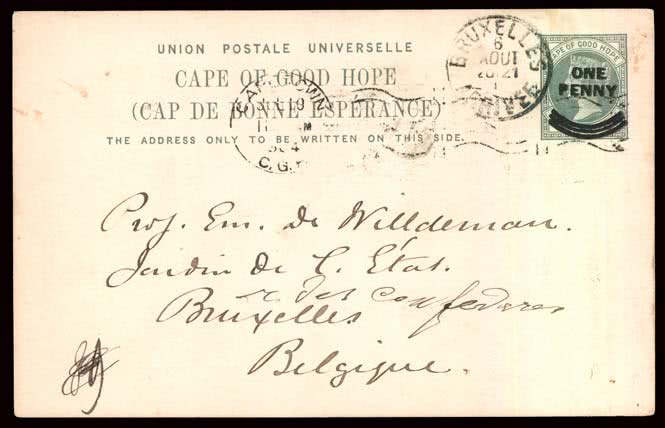 UNION POSTALE UNIVERSELLE
CAPE OF GOOD HOPE
(CAP DE BONNE ESPERANCE)
THE ADDRESS ONLY TO BE WRITTEN ON THIS SIDE.
BRUXELLES
6
AOUT
CAPE OF GOOD HOPE
ONE
PENNY
CAPE TOWN
JUL 19
11 M
C.G.
Prof. Em. De Willdeman.
Jardin De l. État.
r des confederes
Bruxelles
Belgique.